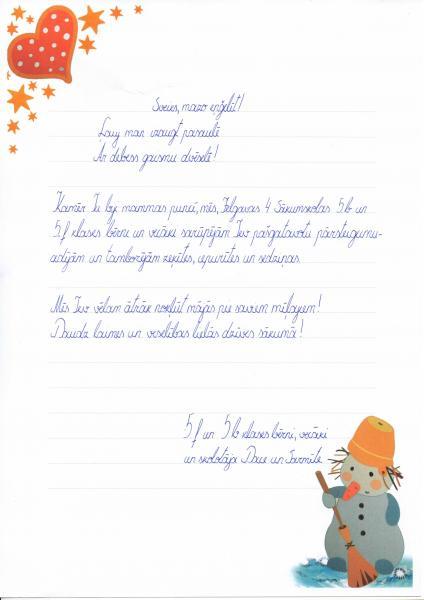 Sveiks, mazo eņģelīt!
Ļauj man izaugt pasaulē
Ar debess gaismu dvēselē!
Kamēr Tu biji mammas puncī, mēs, Jelgavas 4 Sākumskolas 5b un
5f klases bērni un vecāki sarūpējām Tev pašgatavotu pārsteigumu-
adījām un tamborējām zeķītes, cepurītes un sedziņas.
Mēs Tev vēlam ātrāk nokļūt mājās pie saviem mīļajiem!
Daudz laimes un veselības lielās dzīves sākumā!
5f un 5b klases bērni, vecāki
un skolotāja Dace un Sarmīte